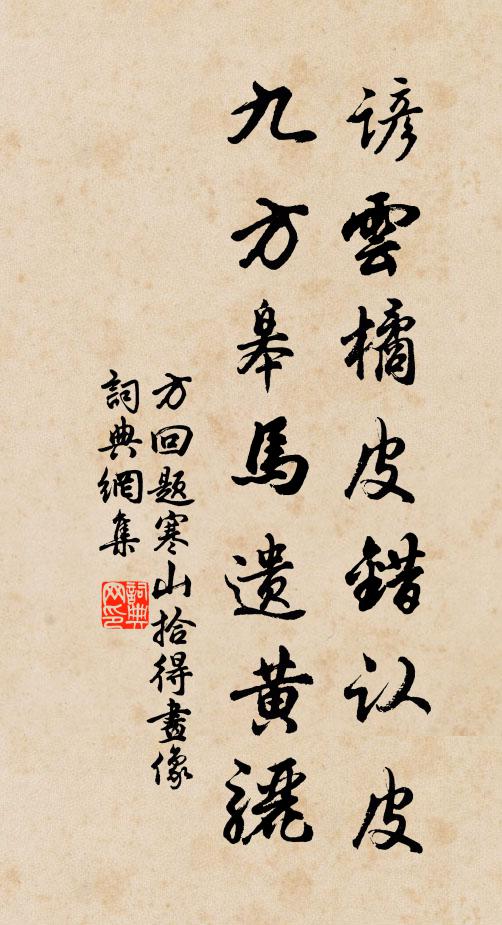 諺雲橘皮錯认皮
九方皋馬遺黄驪
方回题寒山拾得畫像
詞典網集
詞典
网印